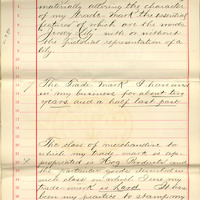 materially altering the character
of my trade-mark the essential
features of which are the words
"Jersey City" with or without
the pictorial representation of a
city.
The Trade Mark I have used
in my business for about two
years and a half last past.
The class of merchandise to
which my trade-mark is ap-
propriated is Hog Products and
the particular goods described in
such class on which I use my
trade-mark is Lard. It has
been my practice to stamp my